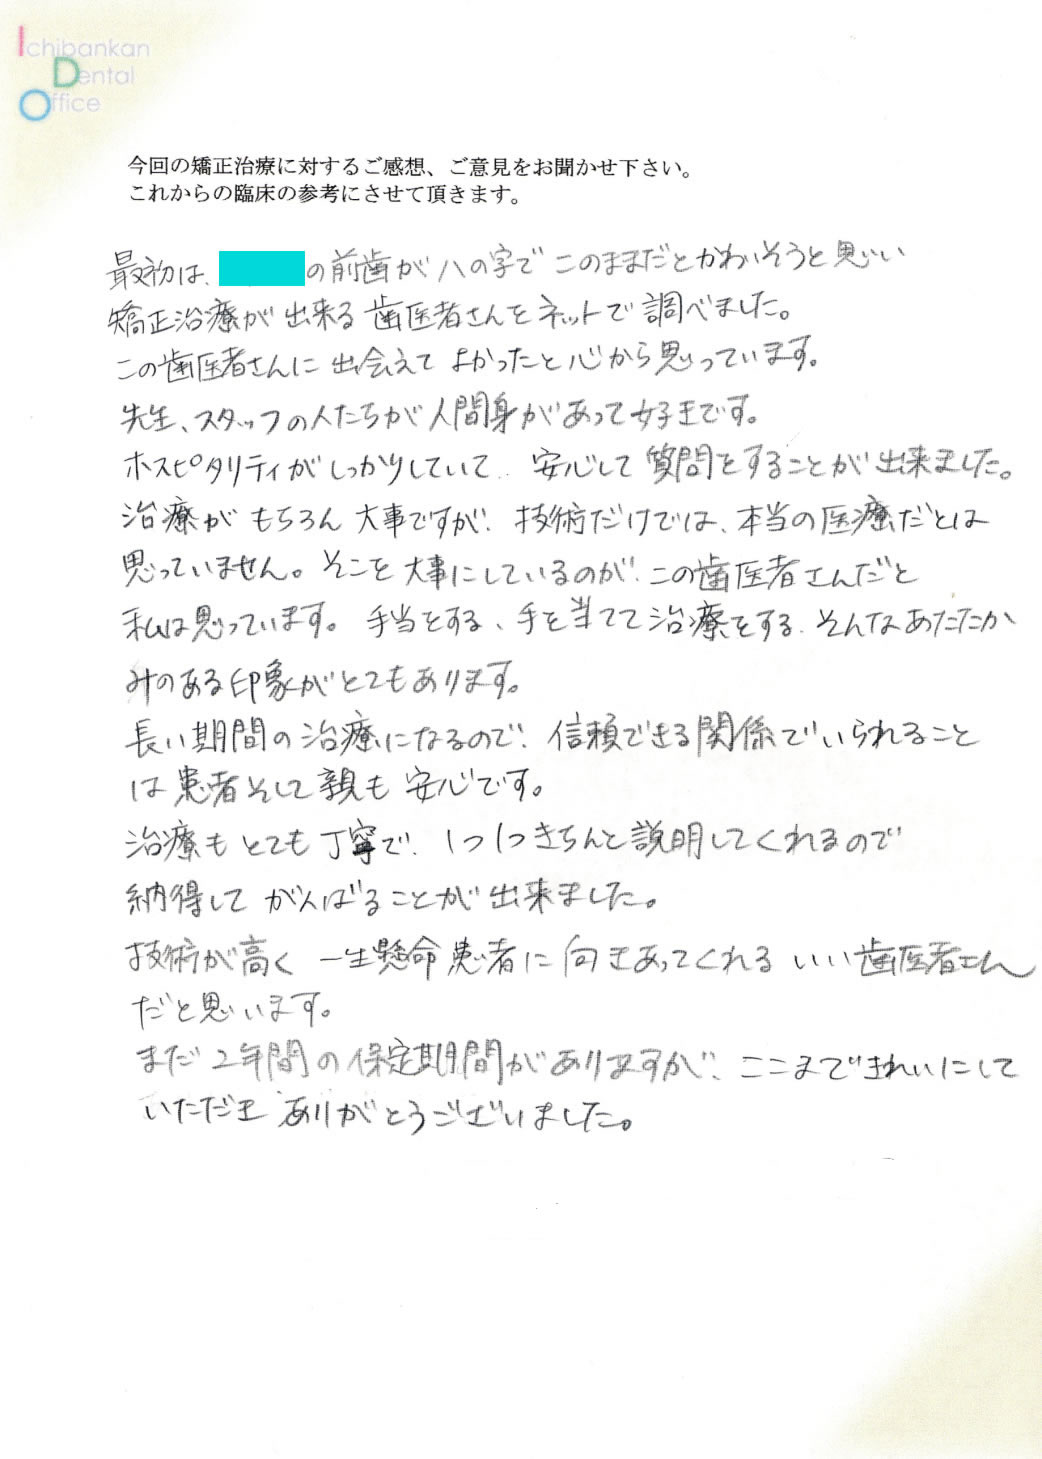 Ichibankan
Dental
Office
今回の矯正治療に対するご感想、ご意見をお聞かせ下さい。
これからの臨床の参考にさせて頂きます。
最初は、の前歯がハの字でこのままだとかわいそうと思い
矯正治療が出来る歯医者さんをネットで調べました。
この歯医者さんに出会えてよかったと心から思っています。
先生、スタッフの人たちが人間身があって好きです。
ホスピタリティがしっかりしていて、安心して質問をすることが出来ました。
治療がもちろん大事ですが、技術だけでは、本当の医療だとは
思っていません。そこを大事にしているのが、この歯医者さんだと
私は思っています。手当をする、手を当てて治療をする、そんなあたたか
みのある印象がとてもあります。
長い期間の治療になるので、信頼できる関係でいられること
は患者そして親も安心です。
治療もとても丁寧で、1つ1つきちんと説明してくれるので
納得してがんばることが出来ました。
技術が高く一生懸命患者に向きあってくれるいい歯医者さん
だと思います。
まだ2年間の保定期間がありますが、ここまできれいにして
いただきありがとうございました。